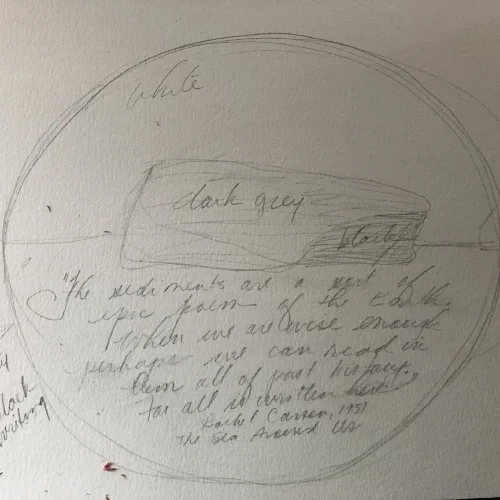 white
dark grey
black
"The sediments are a sort of
epic poem of the Earth.
When we are wise enough
perhaps we can read in
them all of past history.
For all is written here."
Rachel Carson, 1951
The Sea Around Us
black
writing